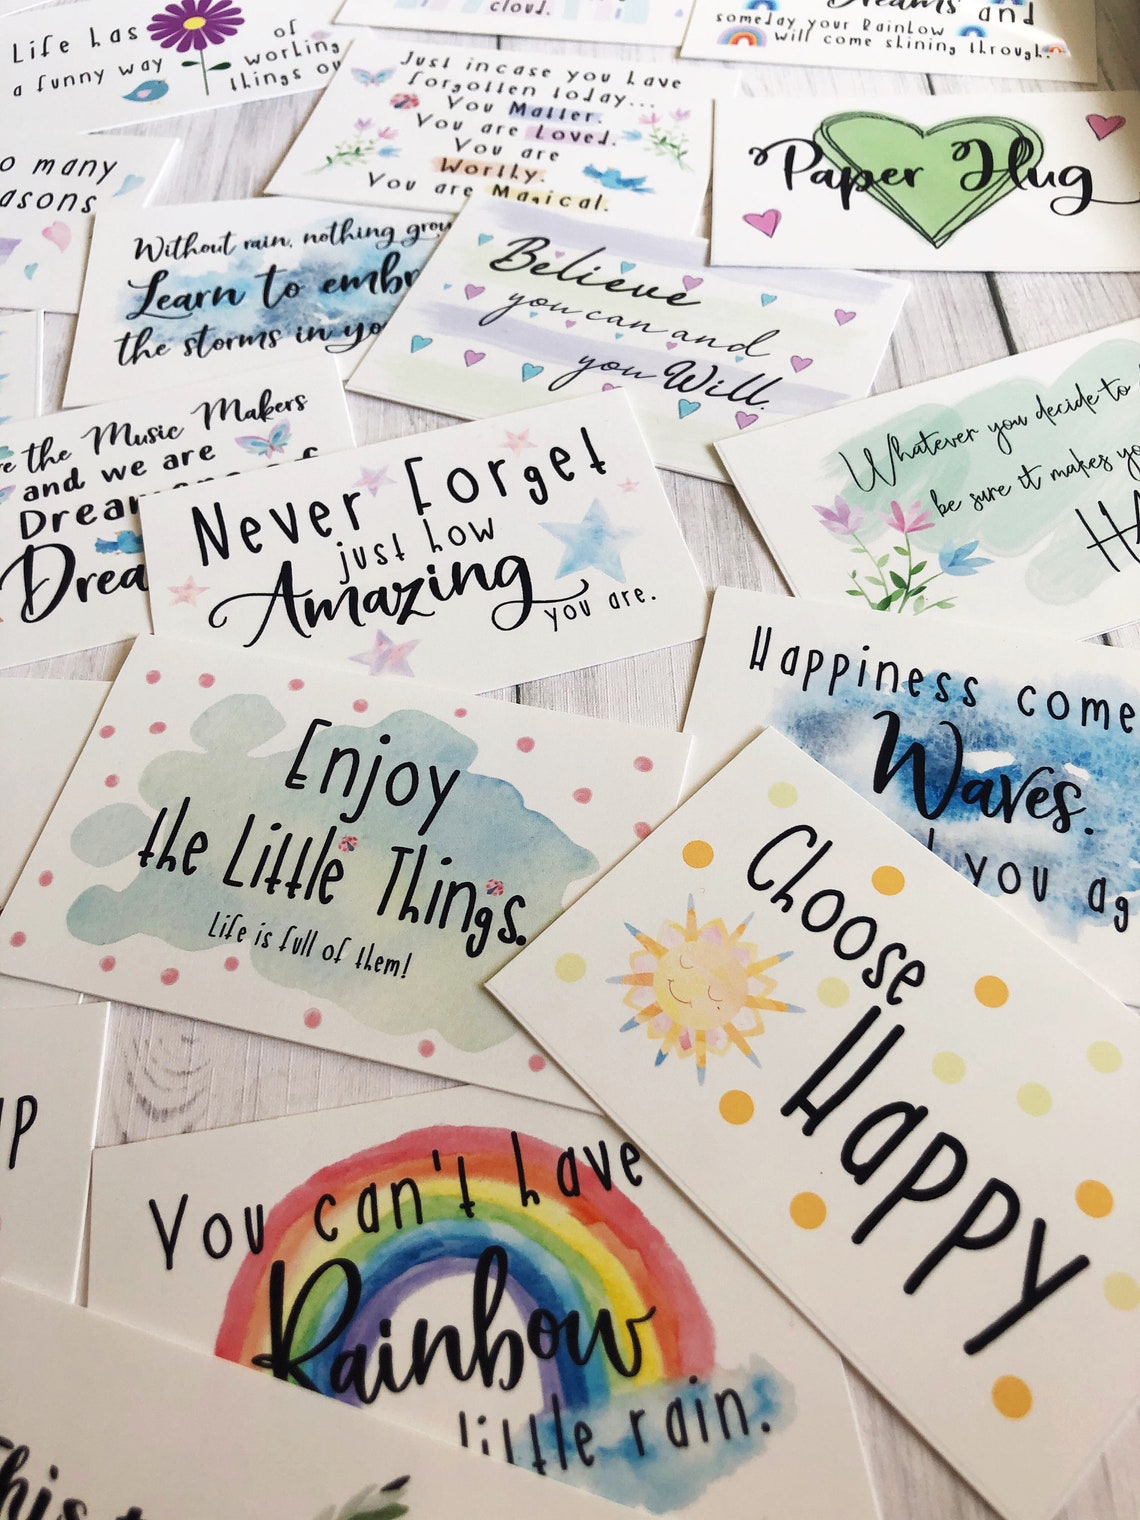 Life has of
a funny way working
things ou
cloud.
Dreams and
someday your Rainbow
will come shining through.
Just incase you have
forgotten today...
You Matter.
You are Loved.
You are
Worthy.
You are Magical.
Paper Hug
o many
asons
Without rain, nothing grow
Learn to embr
the storms in yo
Believe
you can and
you Will.
e the Music Makers
and we are
Dream
Drea
Never Forget
just how
Amazing
you are.
Whatever you decide to
be sure it makes you
HA
Happiness come
Waves.
you ag
Enjoy
the Little Things.
Life is full of them!
Choose
Happy
p
You can't have
Rainbow
little rain.
This t